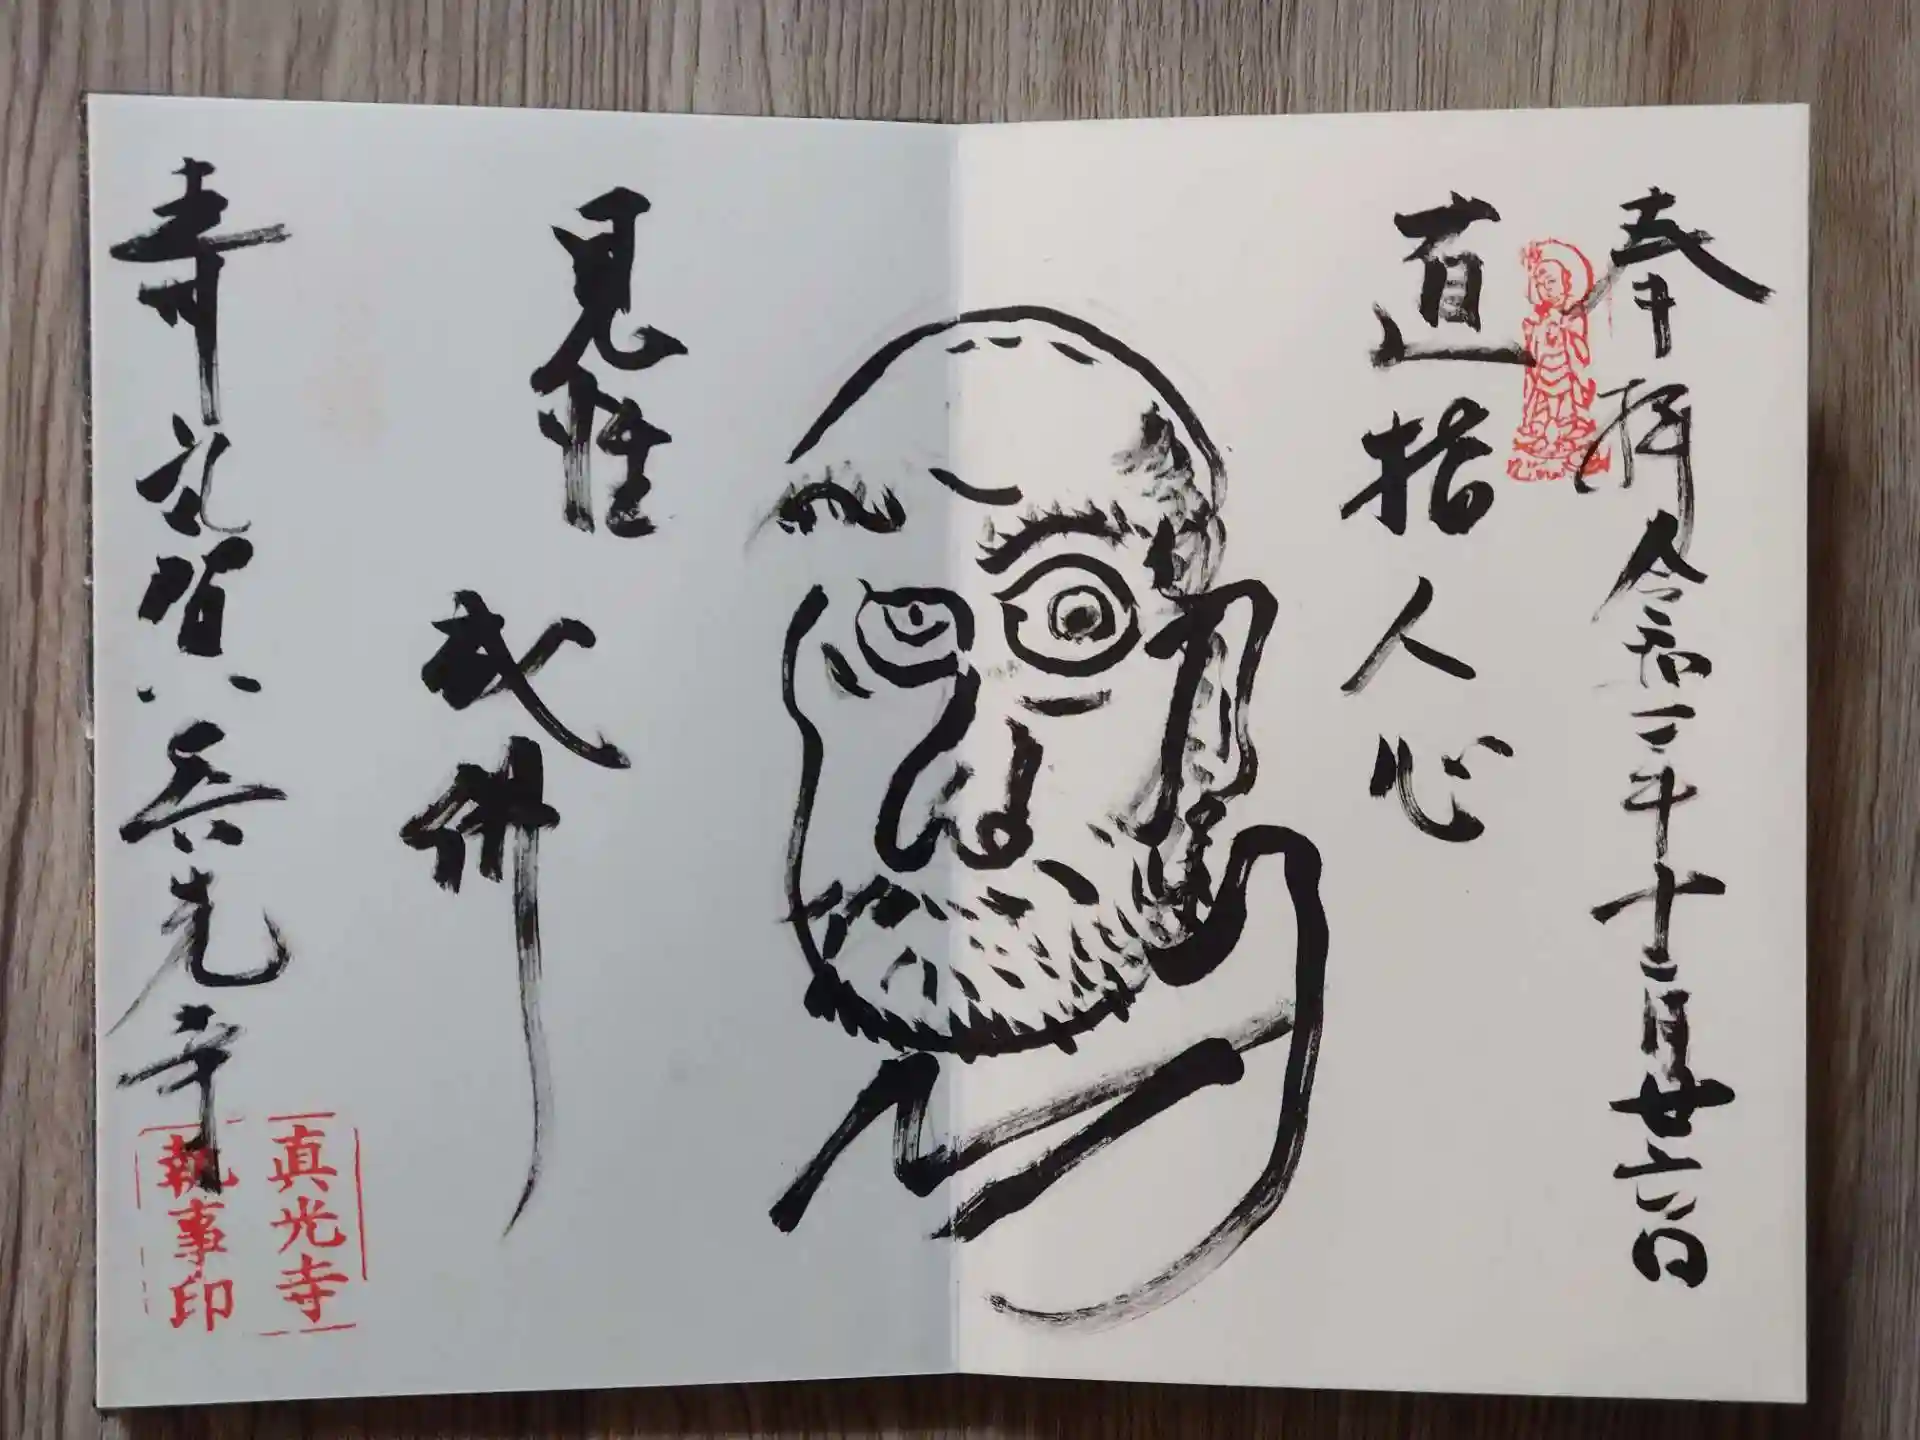 奉拝 令和二年十二月廿六日
直指人心
見性
成佛
真光寺
真光寺
執事印